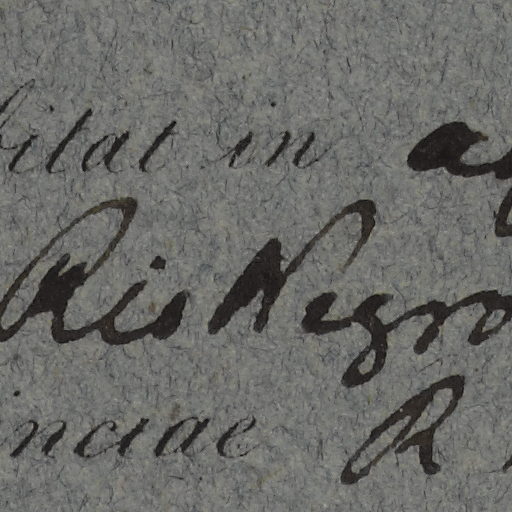 bitat in
Rio Negro
inciae R